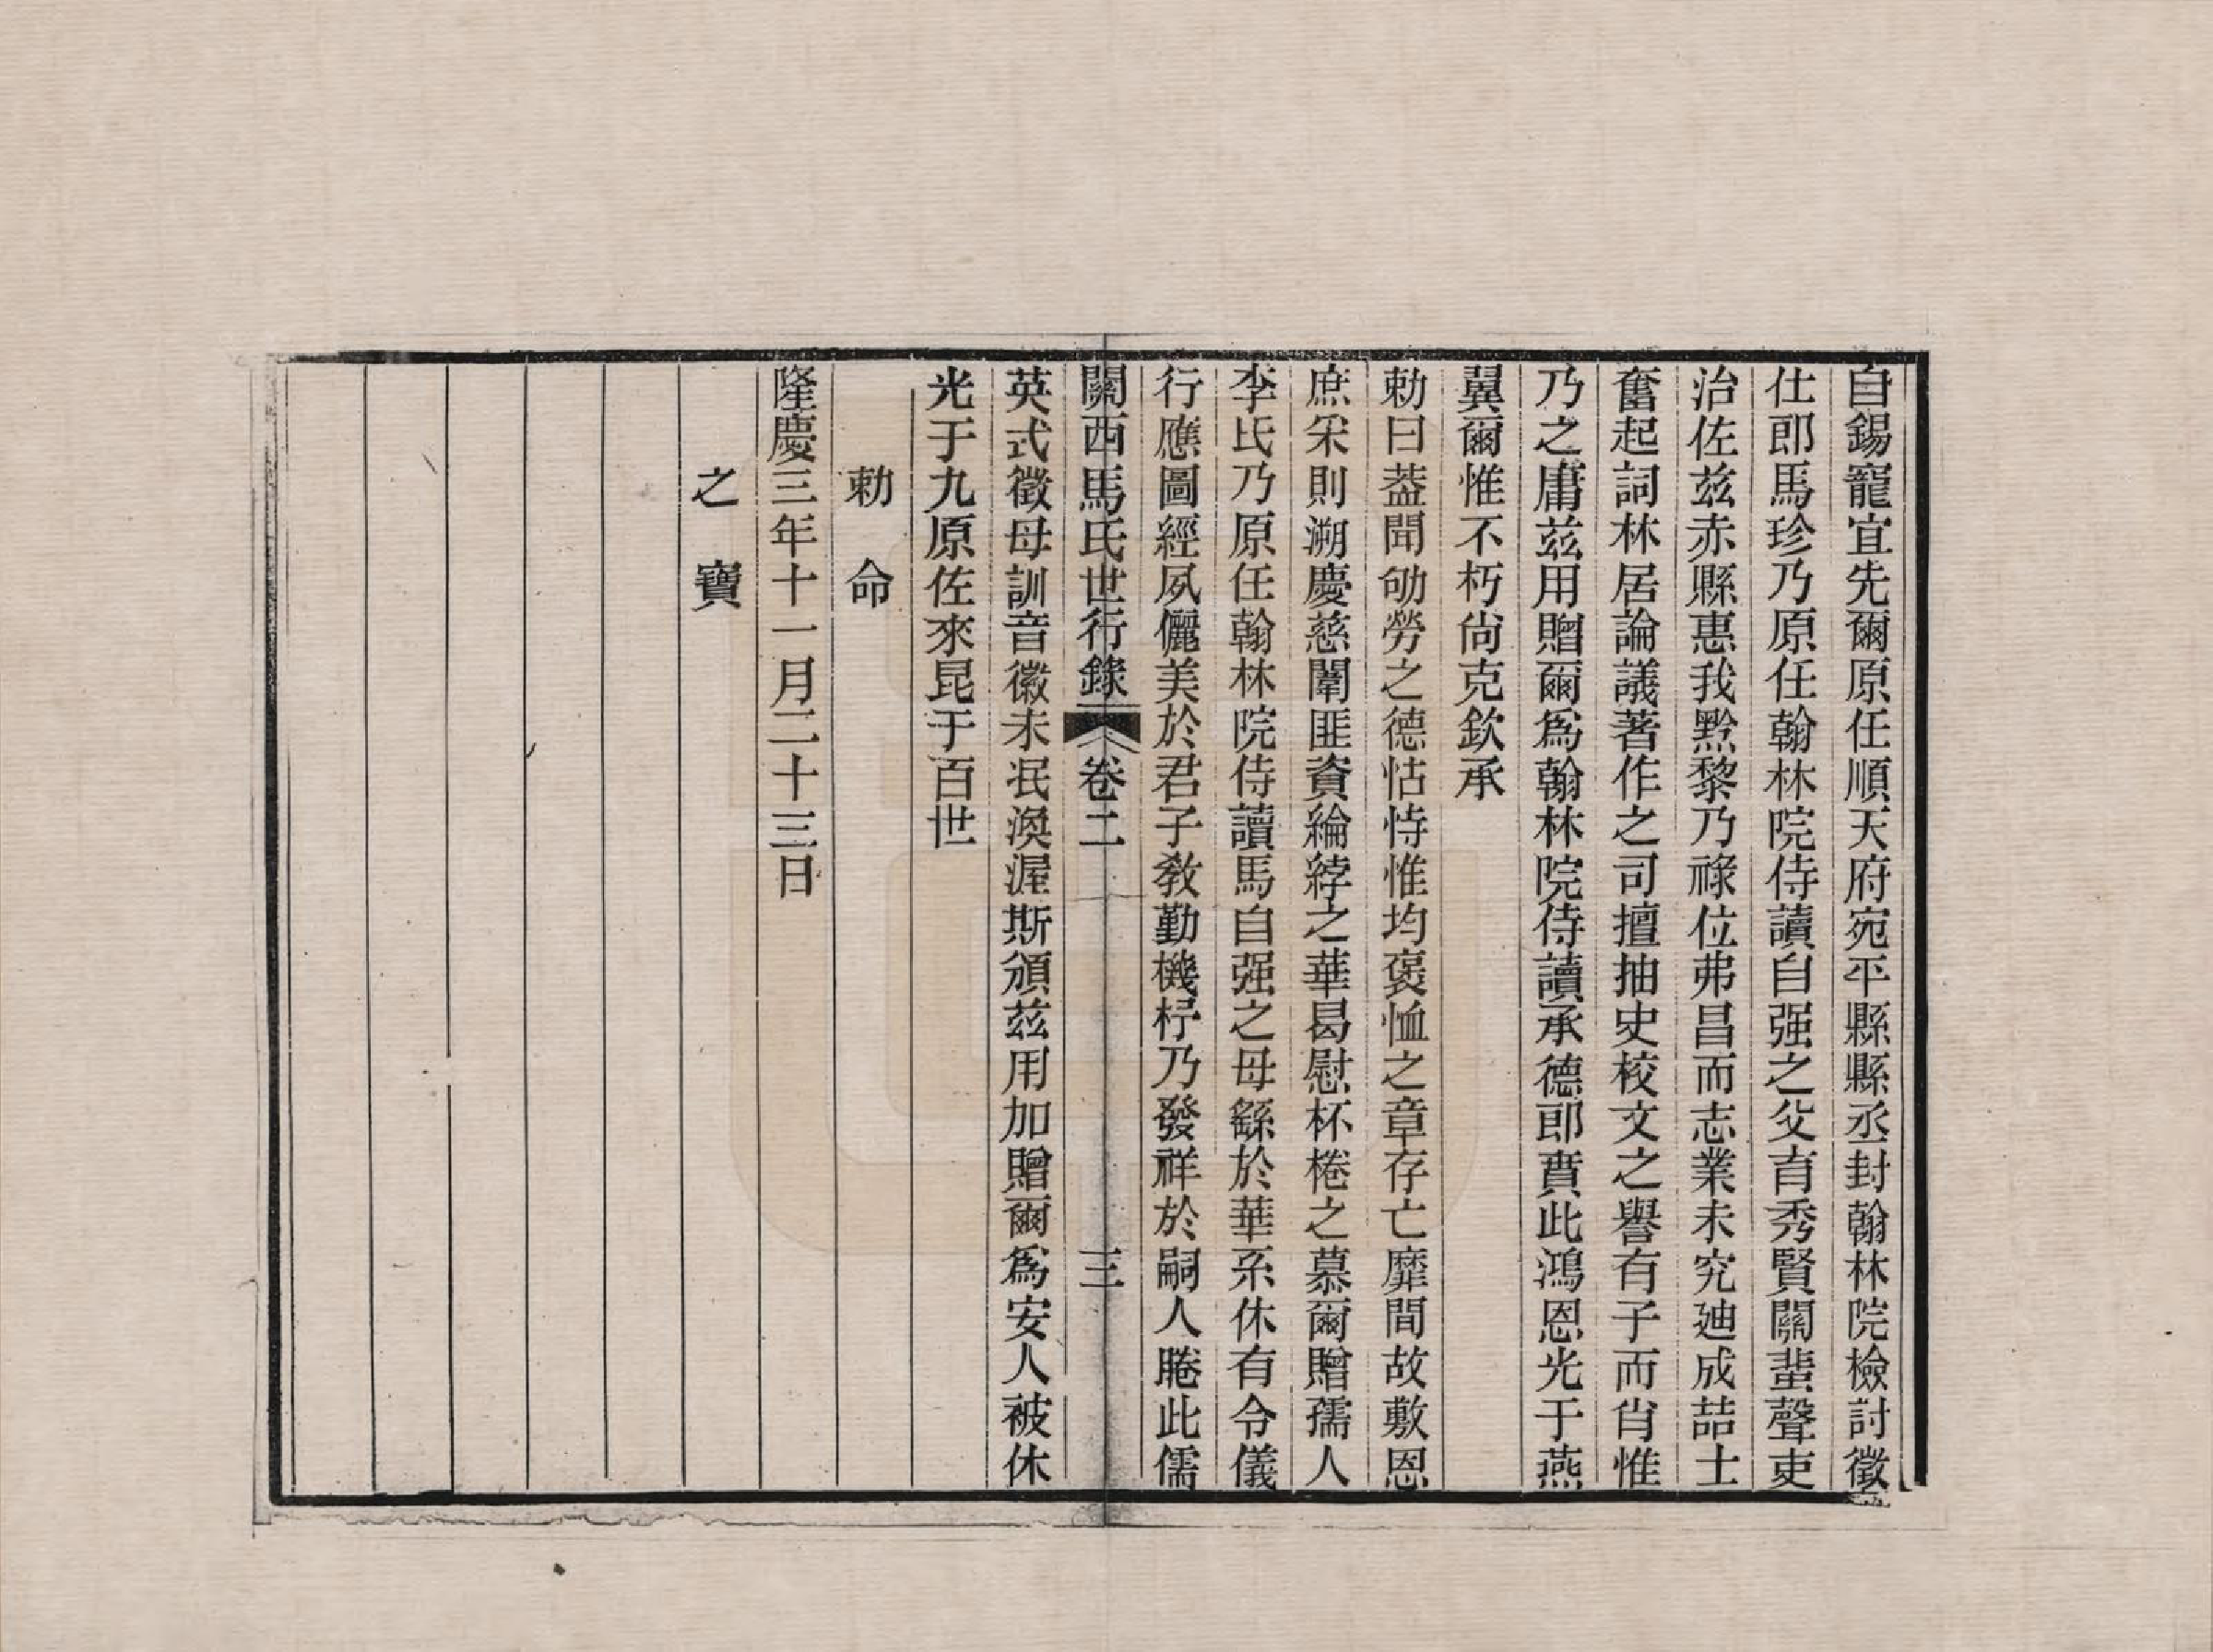 自錫寵宜先爾原任順天府宛平縣縣丞封翰林院檢討徵
仕郎馬珍乃原任翰林院侍讀自强之父育秀賢關蜚聲吏
治佐茲赤縣惠我黔黎乃祿位弗昌而志業未究廸成喆士
奮起詞林居論議著作之司擅抽史校文之譽有子而肖惟
乃之庸茲用贈爾爲翰林院侍讀承德郎賁此鴻恩光于燕
翼爾惟不朽尙克欽承
勅曰葢聞劬勞之德怙恃惟均褒恤之章存亡靡間故敷恩
庶寀則溯慶慈闈匪資綸綍之華曷慰杯棬之慕爾贈孺人
李氏乃原任翰林院侍讀馬自强之母繇於華系休有令儀
行應圖經夙儷美於君子敎勤機杼乃發祥於嗣人睠此儒
關西馬氏世行錄 卷二 三
英式徵母訓音徽未泯渙渥斯頒茲用加贈爾爲安人被休
光于九原佐來昆于百世
勅命
隆慶三年十一月二十三日
之寶